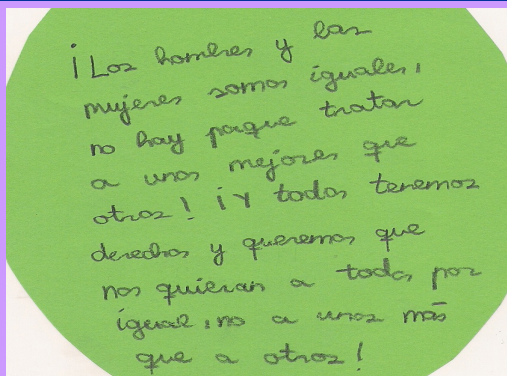 ¡Los hombres y las
mujeres somos iguales,
no hay paque tratar
a unos mejores que
otros! ¡Y todos tenemos
derechos y queremos que
nos quieran a todos por
igual, no a unos más
que a otros!